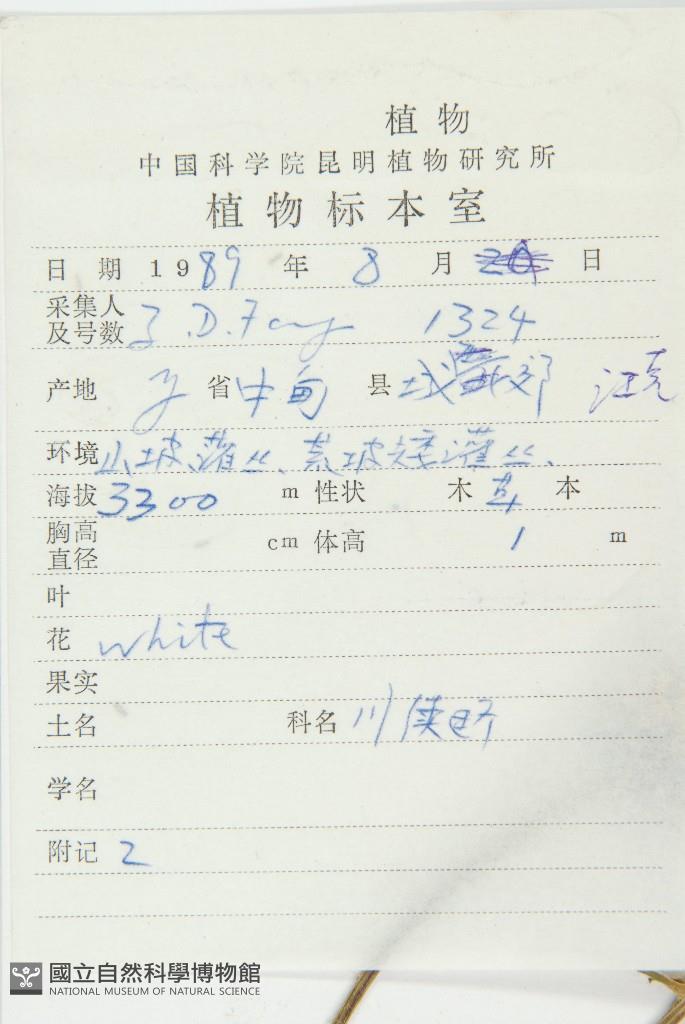 植物
中国科学院昆明植物研究所
植物标本室
日期 1989 年 8 月 日
采集人
及号数 Z.D.Fang 1324
产地 省 中甸 县 城 郊
环境 山坡、灌丛、 灌丛、
海拔 3300 m 性状 木 草 本
胸高
直径 cm 体高 1 m
叶
花 white
果实
土名 科名 川
学名
附记 2
國立自然科學博物館
NATIONAL MUSEUM OF NATURAL SCIENCE